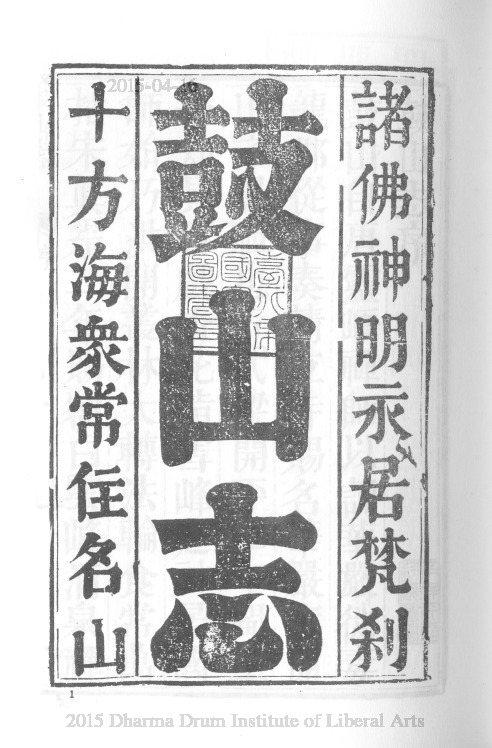 諸佛神明永居梵刹
鼓山志
十方海衆常住名山
2015-04-16
1
2015 Dharma Drum Institute of Liberal Arts